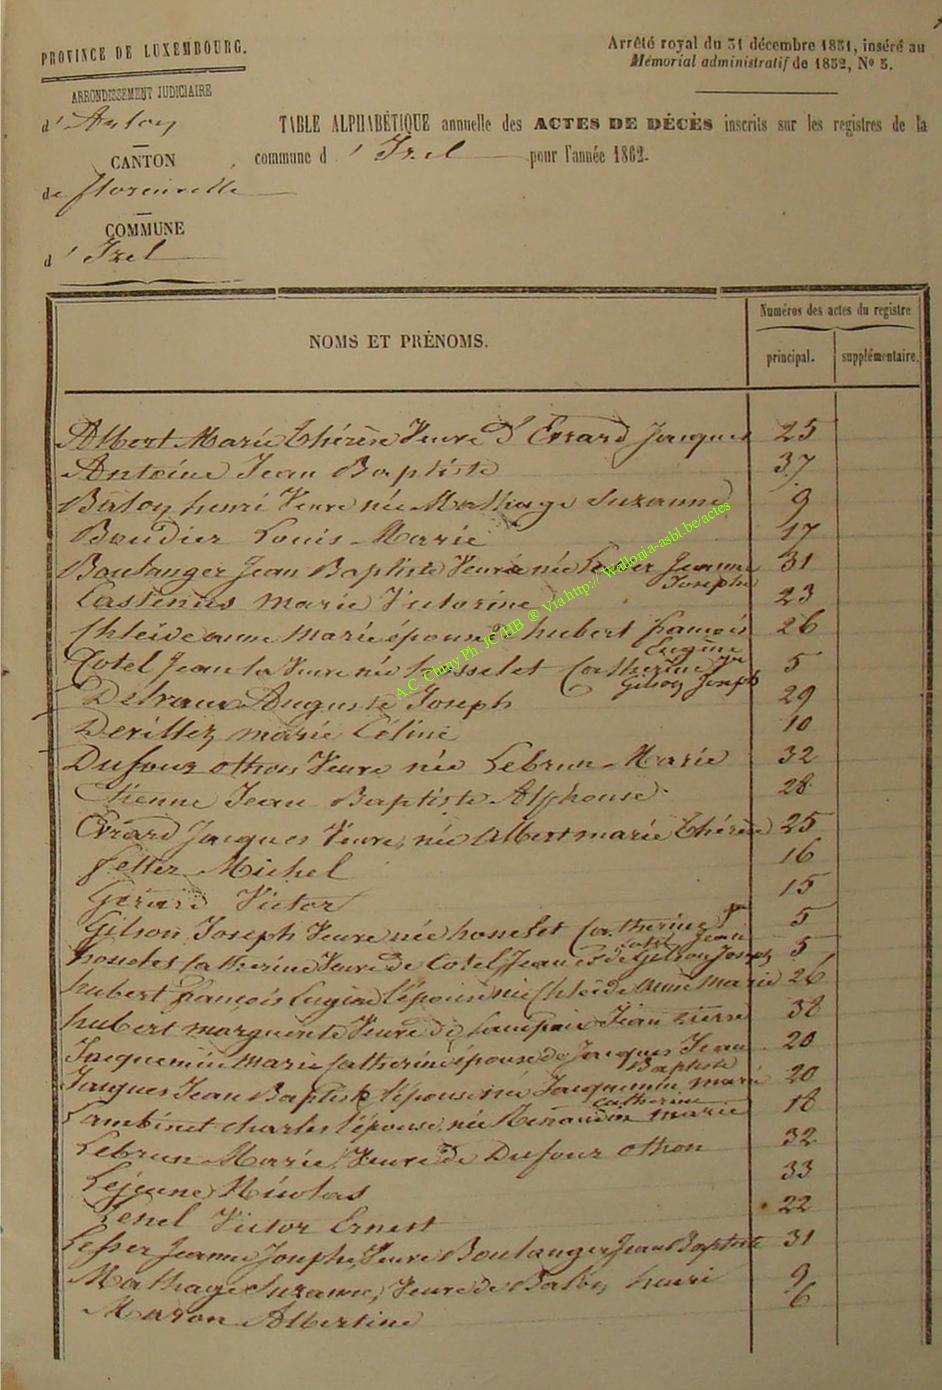 PROVINCE DE LUXEMBOURG.
ARRONDISSEMENT JUDICIAIRE
d'Arlon
CANTON
de florenville
COMMUNE
d'Izel
Arrêté royal du 31 décembre 1831, inséré au
Mémorial administratif de 1832, Nº 5.
TABLE ALPHABÉTIQUE annuelle des ACTES DE DÉCÈS inscrits sur les registres de la
commune d'Izel pour l'année 1862.
NOMS ET PRÉNOMS.
Numéros des actes du registre
principal. supplémentaire.
Albert Marie thérèse Veuve d'Evrard Jacques 25
Antoine Jean Baptiste 37
Baloy henri Veuve née Mathage Suzanne 9
Baudier Louis Marie 17
Boulanger Jean Baptiste Veuve née Lesser Jeanne 31
Josephe
Castenus Marie Victorine 23
Chleide anne marie épouse de hubert francois 26
Eugène
Cotel Jean la Veuve née hosselet Catherine 5
Gilson Joseph
Delvaux Auguste Joseph 29
Derillez marie Céline 10
Dufour othon Veuve née Lebrun Marie 32
Etienne Jean Baptiste Alphonse 28
Evrard Jacques Veuve, née Albert marie thérèse 25
feller Michel 16
Gerard Victor 15
Gilson Joseph Veuve née hosselet Catherine 5
Cotel Jean
hosselet Catherine Veuve de Cotel Jean et de Gilson Joseph 5
hubert francois Eugène l'épouse née Chleide Anne Marie 26
hubert marguerite Veuve de Jean Pierre 38
Jacquemin Marie Catherine épouse de Jacques Jean 20
Baptiste
Jacques Jean Baptiste l'épouse née Jacquemin marie 20
Catherine
Lambinet charles l'épouse, née Renaudin marie 18
Lebrun Marie Veuve de Dufour othon 32
Lejeune Nicolas 33
Lenel Victor Ernest 22
Lesser Jeanne Josephe, Veuve Boulanger Jean Baptiste 31
Mathage Suzanne, Veuve de Baloy henri 9
Maron Albertine 6
A.C. Chiny Ph. JC HB ® Via http:// Wallonia-asbl.be/actes